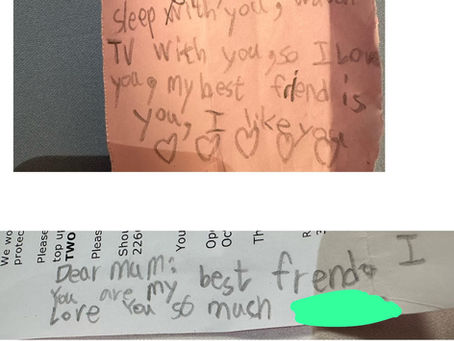 sleep with you, watch
TV with you, so I Love
you, my best friend is
you, I like you
We wo
protec
Please
top up
TWO
Pleas
Shou
226
You
Ope
Oc
Th
Dear mum:
You are my best frend I
Love You so much